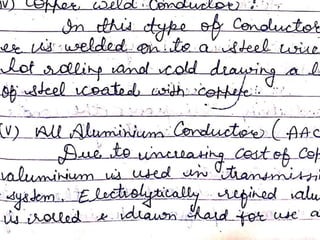 iv) Copper weld Conductor :
In this type of Conductor
er is welded on to a steel wire
hot rolling and cold drawing a l
of steel coated with copper.
(v) All Aluminium Conductor (AAC
Due to increasing cost of Cop
aluminium is used in transmissi
system. Electrolytically refined alu
is rolled & drawn hard for use a